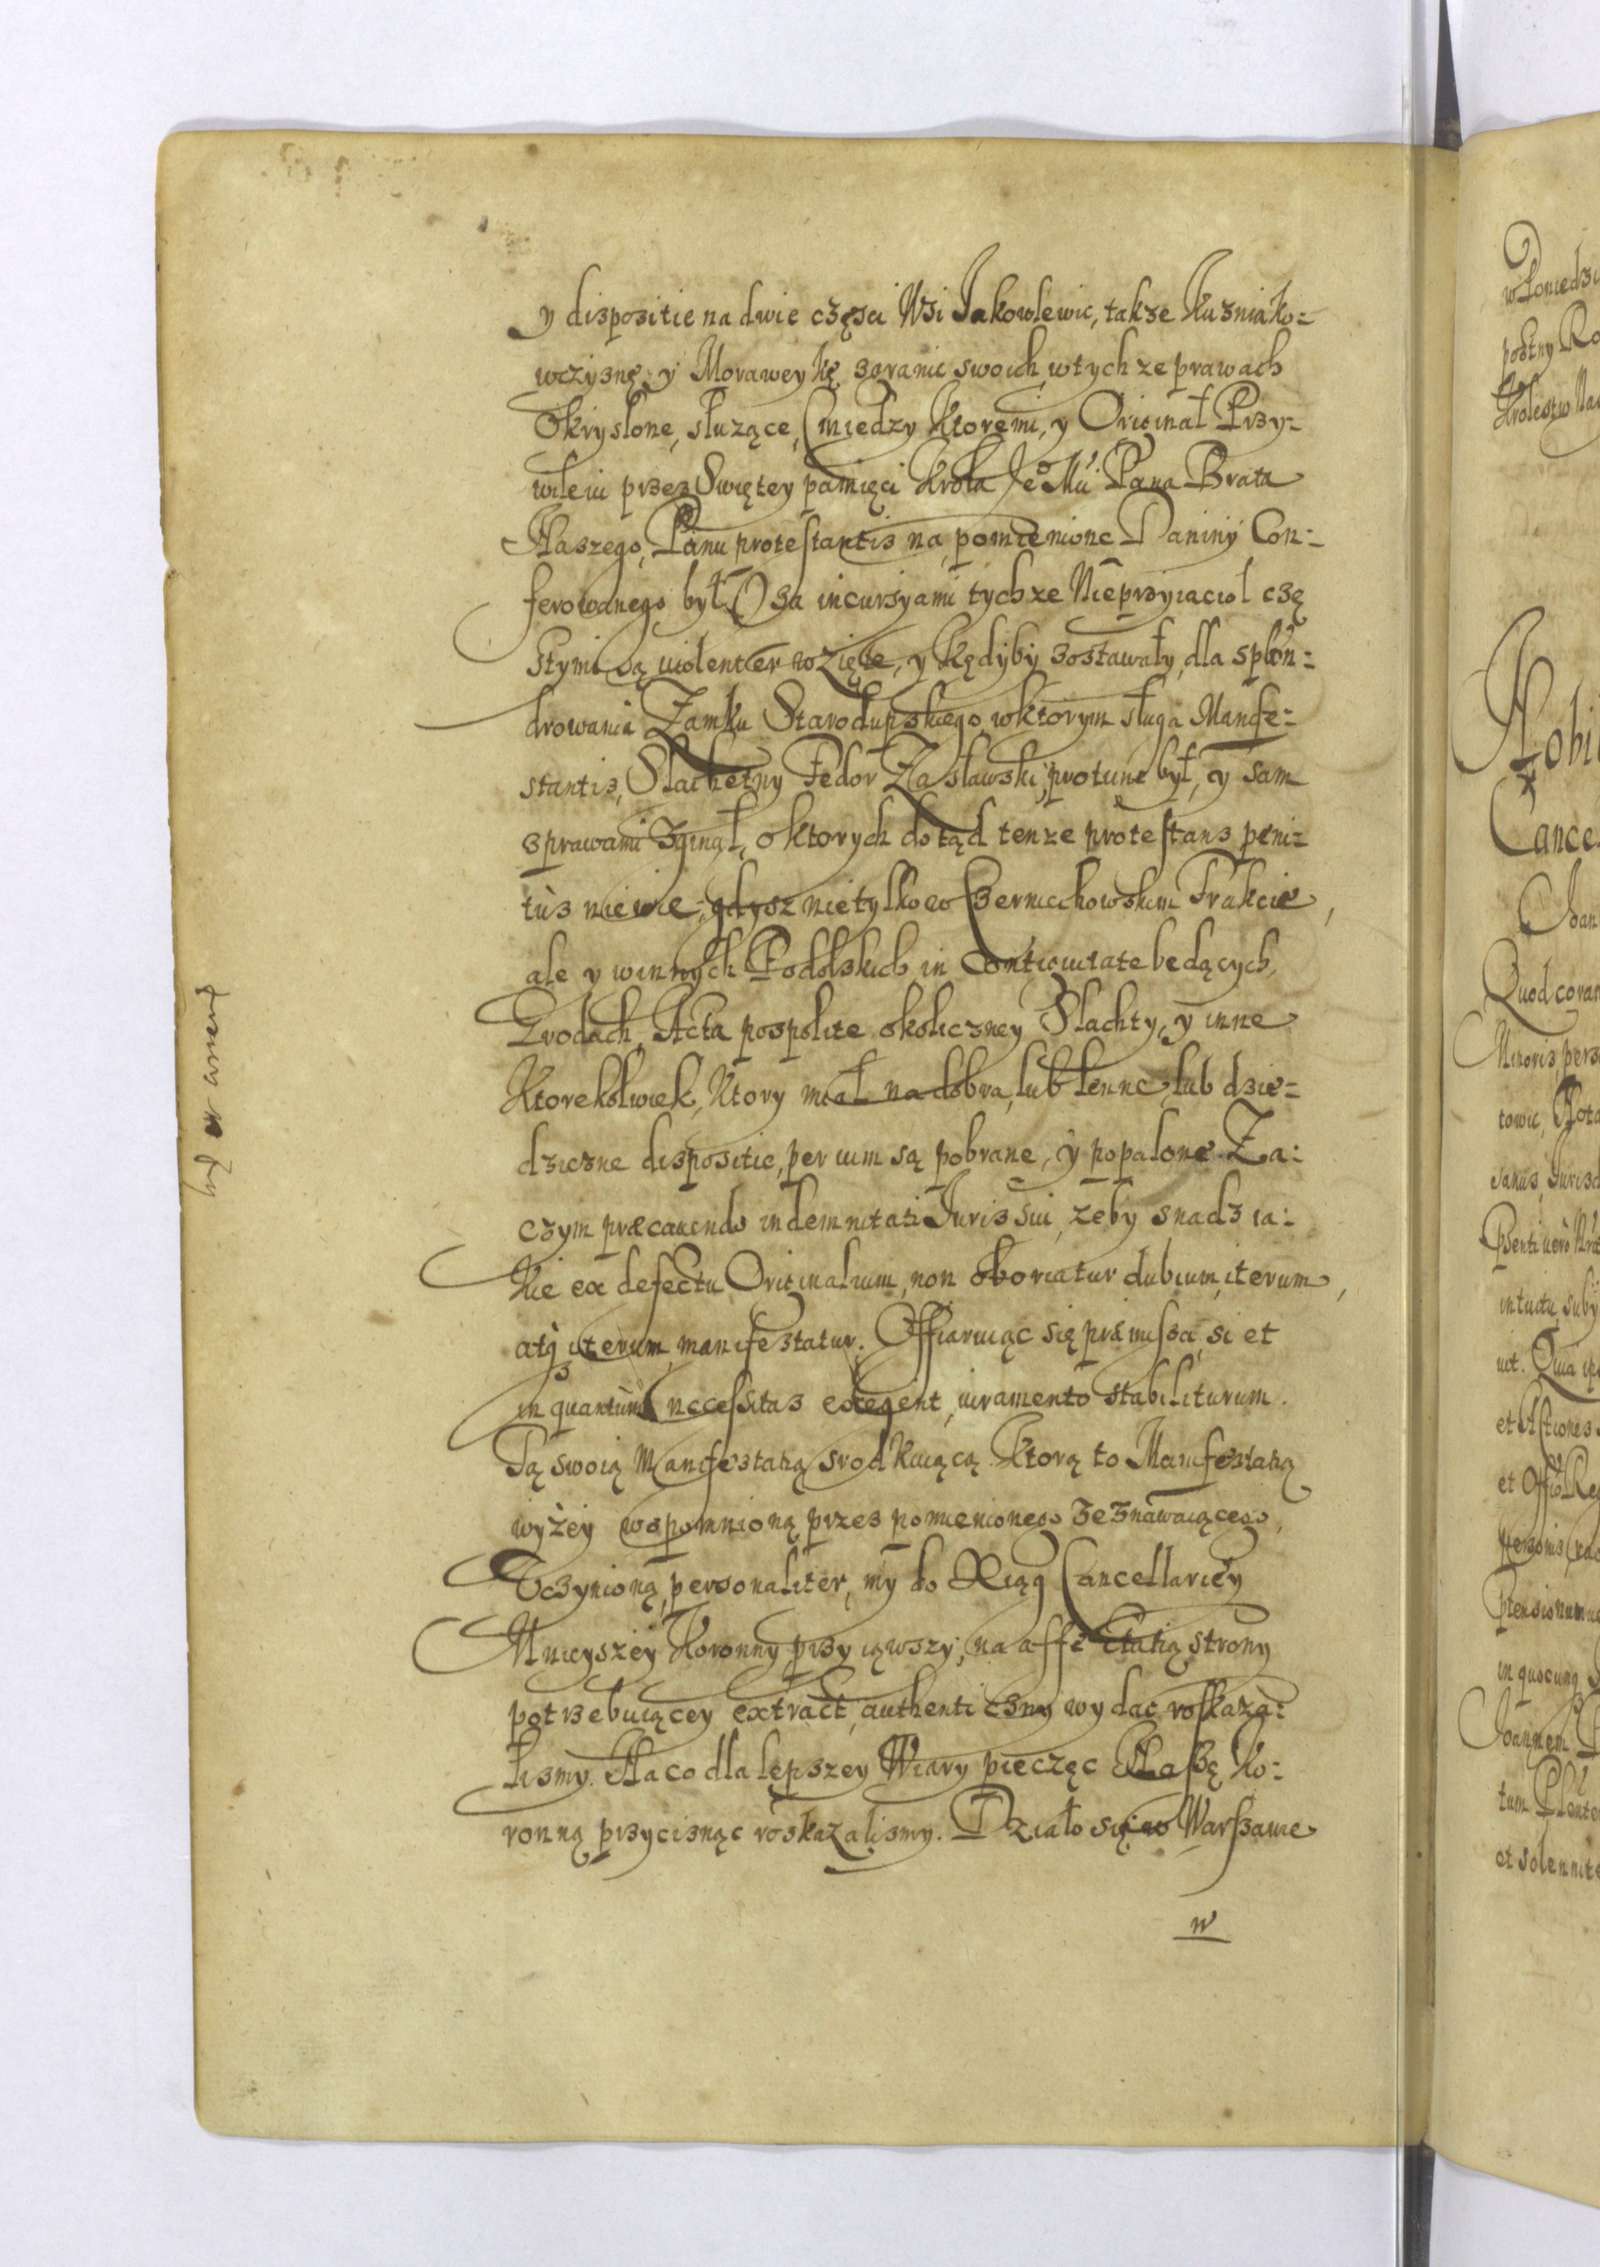 y dispositie na dwie części Wsi Jakowlewic, takze Kuzniako-
wczyznę, y Moraweykę, z granic swoich, w tych ze prawach
Okryslone, sluzące, (miedzy Ktoremi, y Originał Przy-
wileiu przez Swiętey pamięci Krola Je° Mci Pana Brata
Naszego, Panu protestantis na pomienione Daniny Con-
ferowanego był) za incursyami tych ze Nieprzyiaciol czę
stymi są violenter wzięte, y kędyby zostawały, dla splon-
drowania Zamku Starodupskiego w ktorym sługa Manife-
stantis, Slachetny Fedor Zasławski, protunc był, y sam
z prawami Zginął, o ktorych dotąd tenze protestans peni-
tus niewie, gdysz nie tylko w Czerniechowskim Trakcie,
ale y w innych Podolskich in Contiguitate bedących,
Grodach, Acta pospolite okoliczney Slachty, y inne
Ktorekolwiek, Ktory miał na dobra, lub lenne, lub dzie-
dziczne dispositie, per ium są pobrane, y popalone. Za-
czym præcauendo indemnitati Juris sui, zeby snadz ia-
kie ex defectu Originalium, non oboriatur dubium, iterum,
atq iterum, manifestatur. Offiaruiąc się præmissa, si et
in quantum necessitas exegerit, iuramento stabiliturum.
Tą swoią Manifestatią srodkuiącą. Ktorą to Manifestatią
wyżey wspomnioną przez pomienionego Zeznawaiącego,
Uczynioną, personaliter, my do Xiąg Cancellariey
Mnieyszey Koronny przyiąwszy, na affectatią strony
potrzebuiącey extract, authenticzny wydac roskaza-
lismy. Na co dla lepszey Wiary pieczęc Naszę Ko-
ronną przycisnąc roskazalismy. Działo się w Warszawie
w